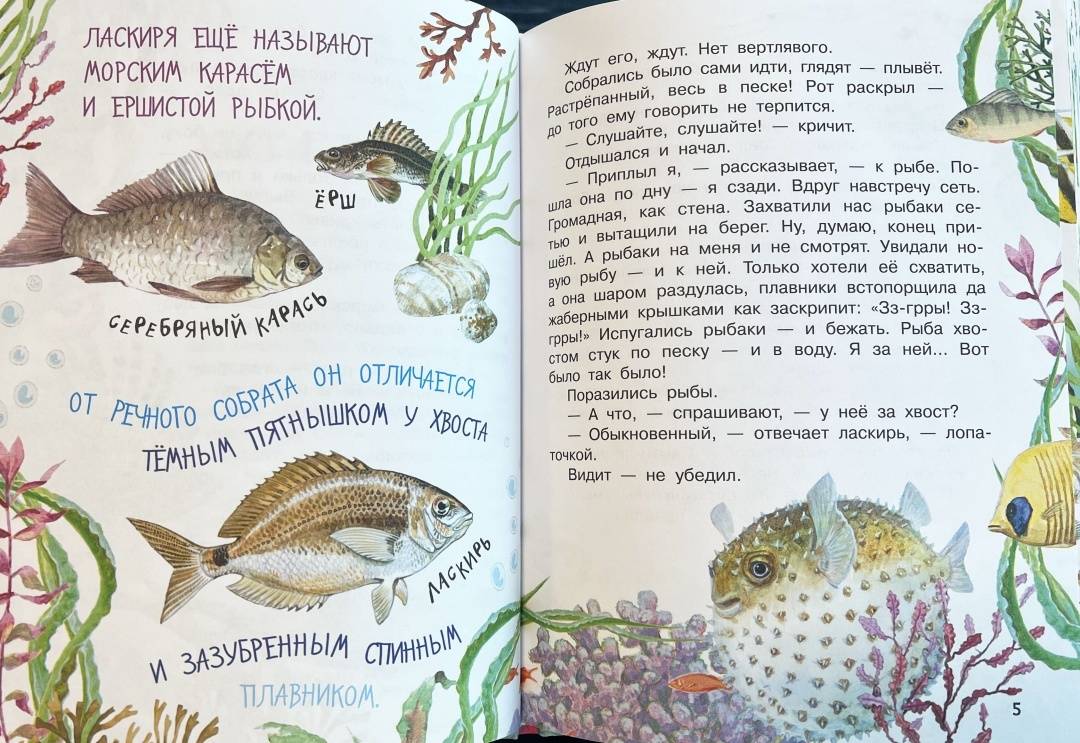 ЛАСКИРЯ ЕЩЁ НАЗЫВАЮТ
МОРСКИМ КАРАСЁМ
И ЕРШИСТОЙ РЫБКОЙ.
ЁРШ
СЕРЕБРЯНЫЙ КАРАСЬ
ОТ РЕЧНОГО СОБРАТА ОН ОТЛИЧАЕТСЯ
ТЁМНЫМ ПЯТНЫШКОМ У ХВОСТА
ЛАСКИРЬ
И ЗАЗУБРЕННЫМ СПИННЫМ
ПЛАВНИКОМ.
Ждут его, ждут. Нет вертлявого.
Собрались было сами идти, глядят — плывёт.
Растрёпанный, весь в песке! Рот раскрыл —
до того ему говорить не терпится.
— Слушайте, слушайте! — кричит.
Отдышался и начал.
— Приплыл я, — рассказывает, — к рыбе. По-
шла она по дну — я сзади. Вдруг навстречу сеть.
Громадная, как стена. Захватили нас рыбаки се-
тью и вытащили на берег. Ну, думаю, конец при-
шёл. А рыбаки на меня и не смотрят. Увидали но-
вую рыбу — и к ней. Только хотели её схватить,
а она шаром раздулась, плавники встопорщила да
жаберными крышками как заскрипит: «Зз-грры! Зз-
грры!» Испугались рыбаки — и бежать. Рыба хво-
стом стук по песку — и в воду. Я за ней... Вот
было так было!
Поразились рыбы.
— А что, — спрашивают, — у неё за хвост?
— Обыкновенный, — отвечает ласкирь, — лопа-
точкой.
Видит — не убедил.
5